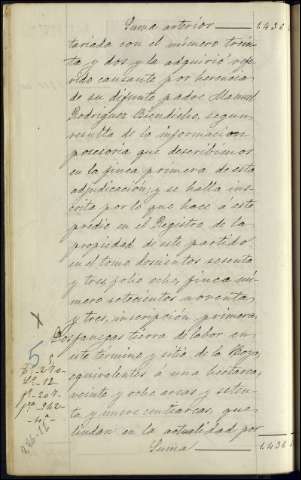 Suma anterior 1.436
tariada con el número trein-
ta y dos y la adquirió refe-
rido causante por herencia
de su difunto padre Manuel
Rodriguez Biendicho, segun
resulta de la informacion
posesoria que describimos
en la finca primera de esta
adjudicación; y se halla ins-
crita por lo que hace á este
predio en el Registro de la
propiedad de este partido
en el tomo doscientos sesenta
y tres, folio ocho, finca nú-
mero setecientos noventa
y tres, inscripción primera.
X
5 Dos fanegas tierra de labor en
este termino y sitio de la Hoya,
equivalentes á una hectarea,
veinte y ocho areas y seten-
ta y nueve centiareas, que
lindan en la actualidad por
Suma 1.436